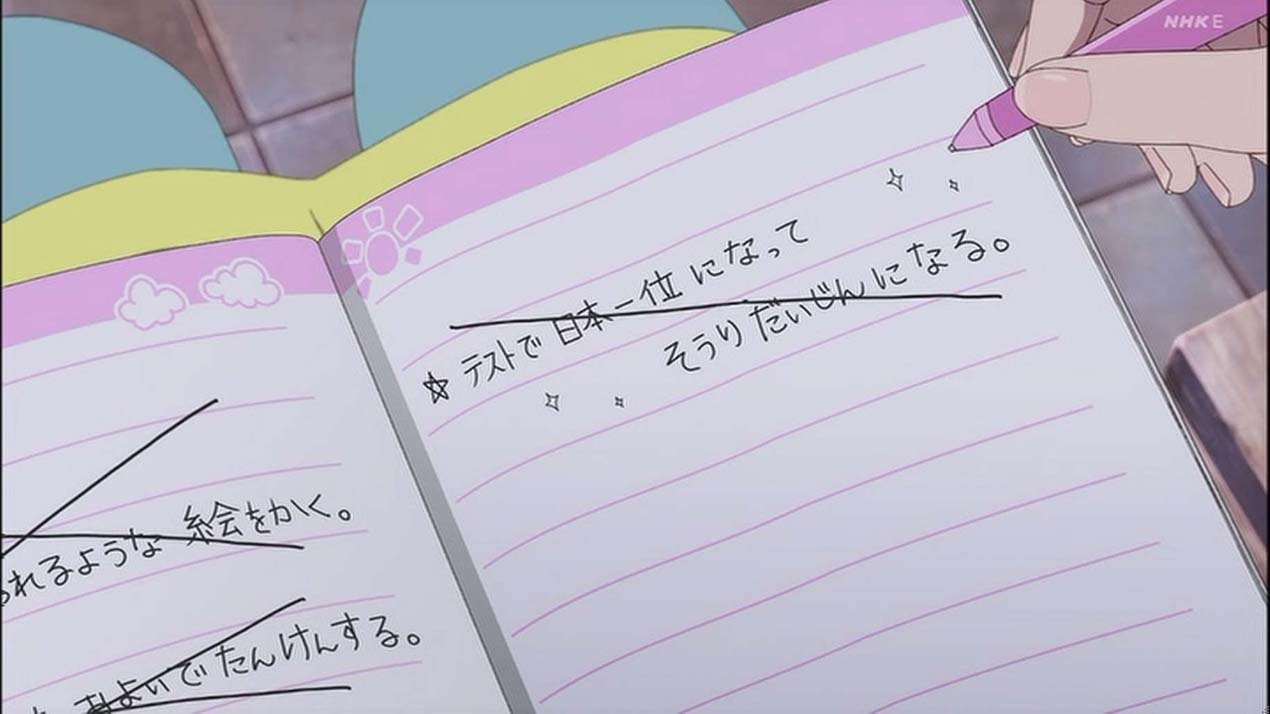 NHK E
られるような絵をかく。
およいでたんけんする。
☆ テストで日本一位になって
そうりだいじんになる。